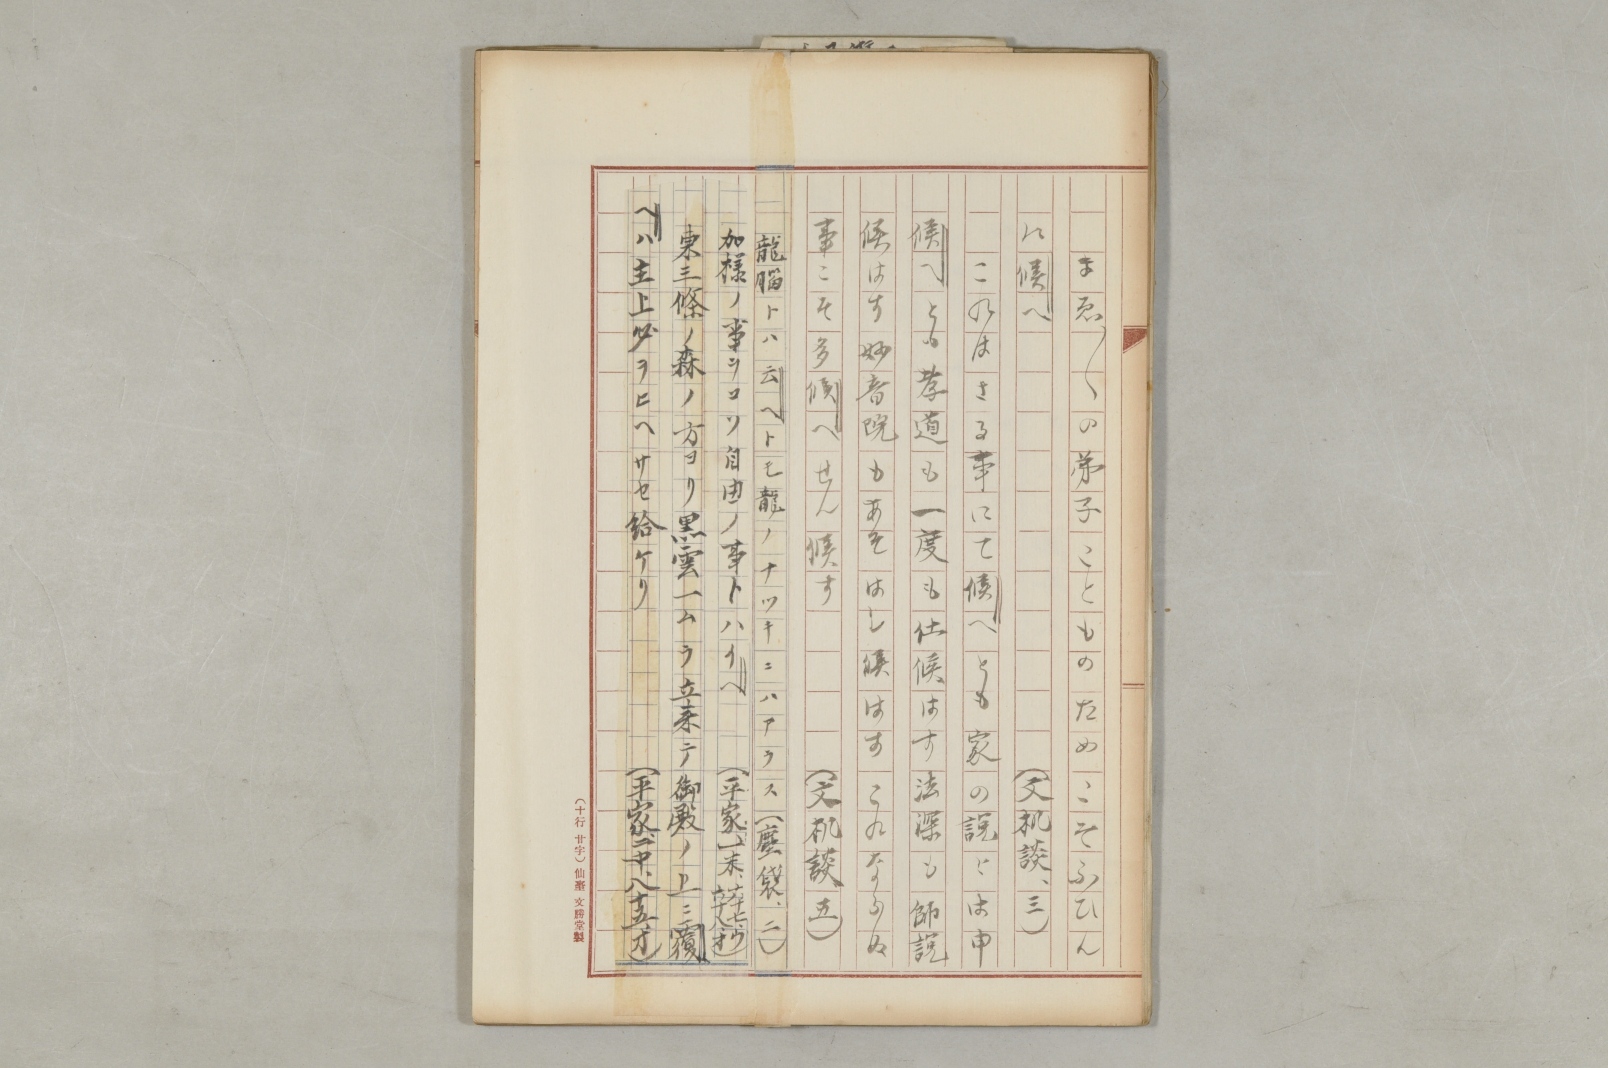 まゐり〱の弟子こともものためこそふひん
に候へ　（文机談、三）
これはさる事にて候へとも家の説とは申
候へとも孝道も一度も仕候はす法深も師説
候はす妙音院もあそはし候はすこれならぬ
事こそ多候へせん候す　（文机談、五）
龍脳トハ云ヘトモ龍ノナツキニハアラス（塵袋、二）
加様ノ事ヲコソ自由ノ事トハイヘ　（平家、一末、六十七ウ六十八オ）
東三條ノ森ノ方ヨリ黒雲一ムラ立来テ御殿ノ上ニ覆
ヘハ主上必ヲヒヘサセ給ケリ　（平家、二中、八十五オ）
（十行 廿字）仙臺 文勝堂製